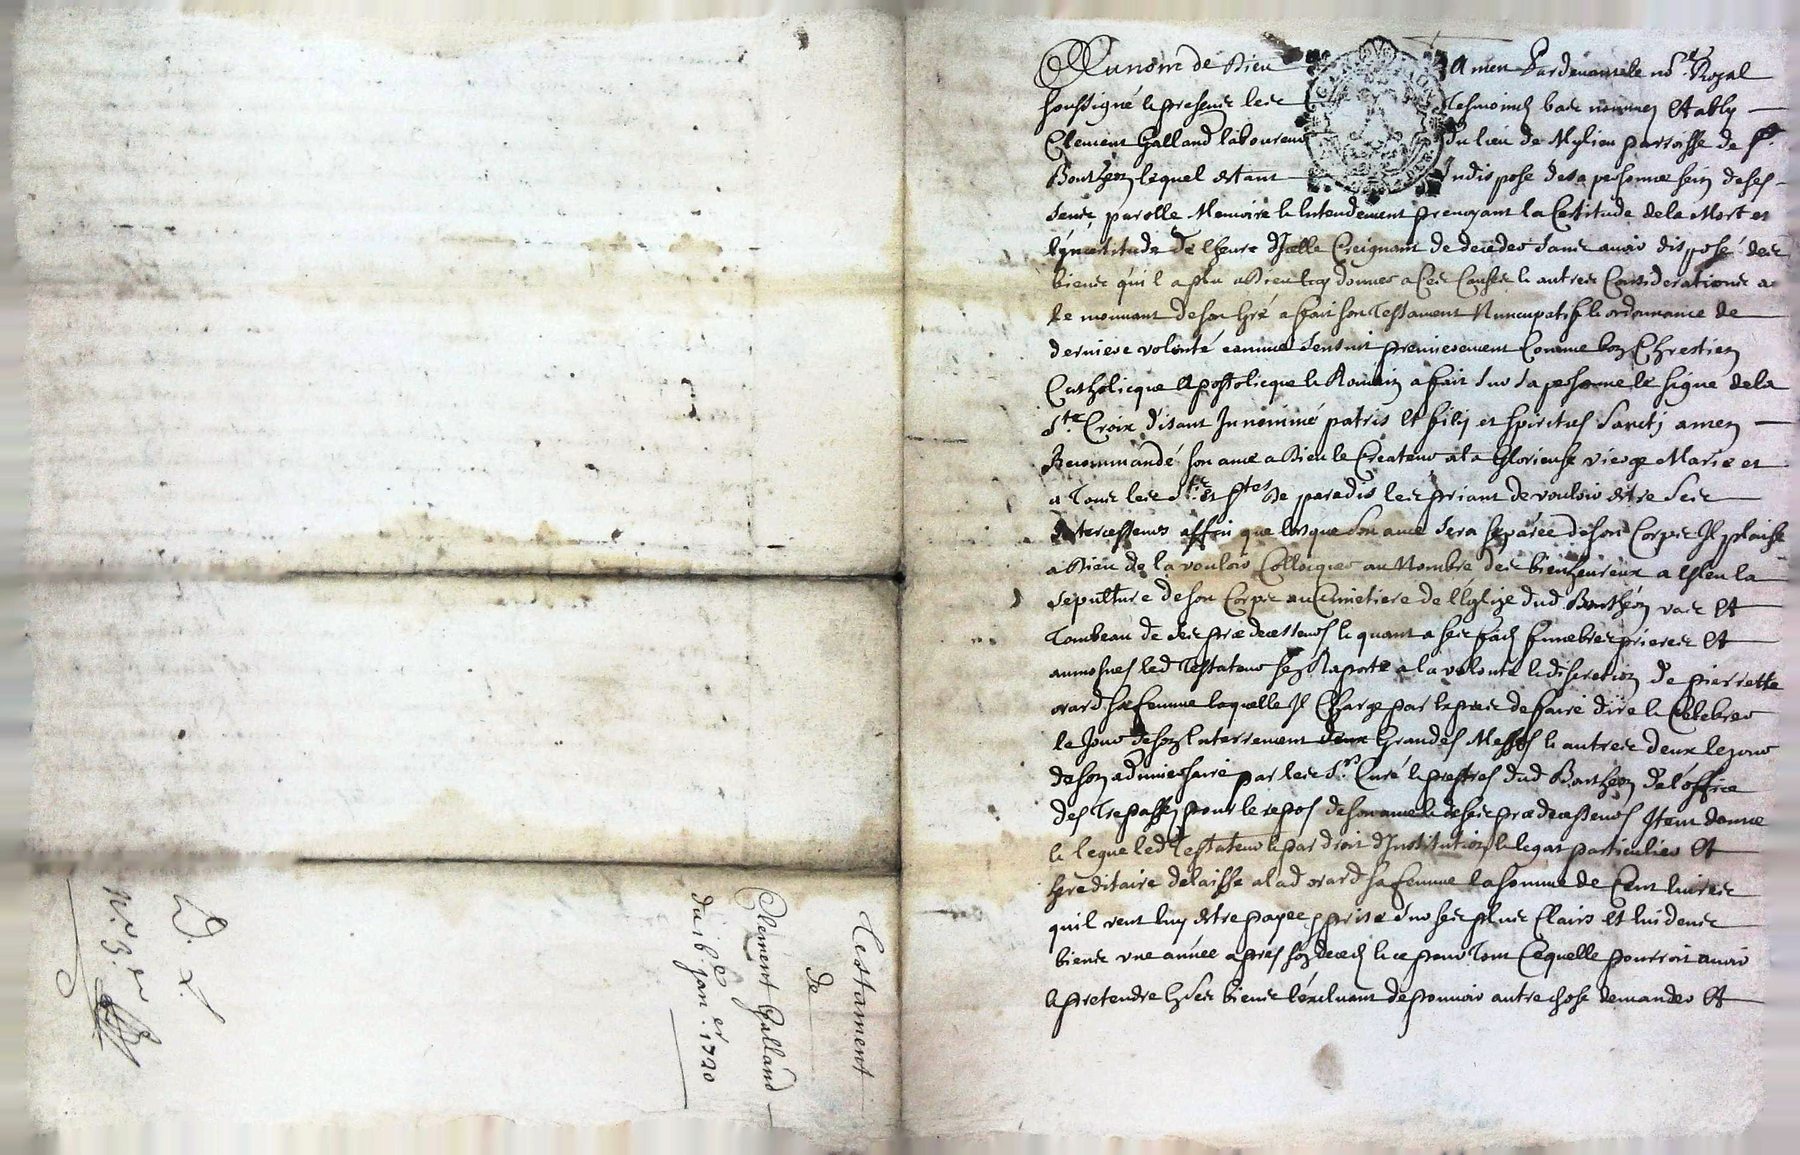 Testament
de
Clement Galland
du ib.e jan.er 1720
N.o 3.
Au nom de Dieu Amen Pardevant le no.re Royal
soussigné & presents les tesmoins bas nommez Estably
Clement Galland laboureur du lieu de Mylieu parroisse de St
Bonthéon lequel estant Indispose de sa personne sein de ses
sens parolle Memoire & Entendement prevoyant la Certitude de la Mort et
l'incertitude de l'heure d'Icelle Creignant de deceder sans avoir disposé des
biens qu'il a plu a Dieu luy donner a Ces Causes & autres Considerations a
ce mouvant de son gré a fait son Testament Nuncupatif & ordonnance de
derniere volonté comme s'ensuit premierement Comme bon Chrestien
Catholicque Apostolicque & Romain a fait sur sa personne le signe de la
Ste Croix disant In nomine patris Et filij et spiritus Sancti amen
Recommandé son ame a Dieu le Createur a la Glorieuse vierge Marie et
a Tous les Sts et Stes de paradis les priant de vouloir estre ses
Intercesseurs affin que lorsque son ame sera séparée de son Corps Il plaise
a Dieu de la vouloir Collocquer au Nombre des bienheureux a Esleu la
sepulture de son Corps au Cimetiere de l'Eglize dud Bonthéon vas Et
Tombeau de ses prædecesseurs & quant a ses frais funebres prieres Et
aumosnes led Testateur s'en Raporte a la volonté & discretion de pierrette
orard sa femme laquelle Il Charge par Expres de faire dire & Celebrer
le Jour de son Enterrement deux Grandes Messes & autres deux le jour
de son adniversaire par les Srs Curé & prestres dud Bonthéon de l'office
des Trepassez pour le repos de son ame & de ses prædecesseurs Item donne
& legue led Testateur & par droit d'Institution & legat particulier Et
hereditaire delaisse a lad orard sa femme la somme de Cent livres
quil veut luy estre payee & prise sur ses plus Clairs et luidents
biens une année apres son decedz & ce pour Tout Ce quelle pourroit avoir
& pretendre En ses biens l'excluant de pouvoir autre chose demander Et